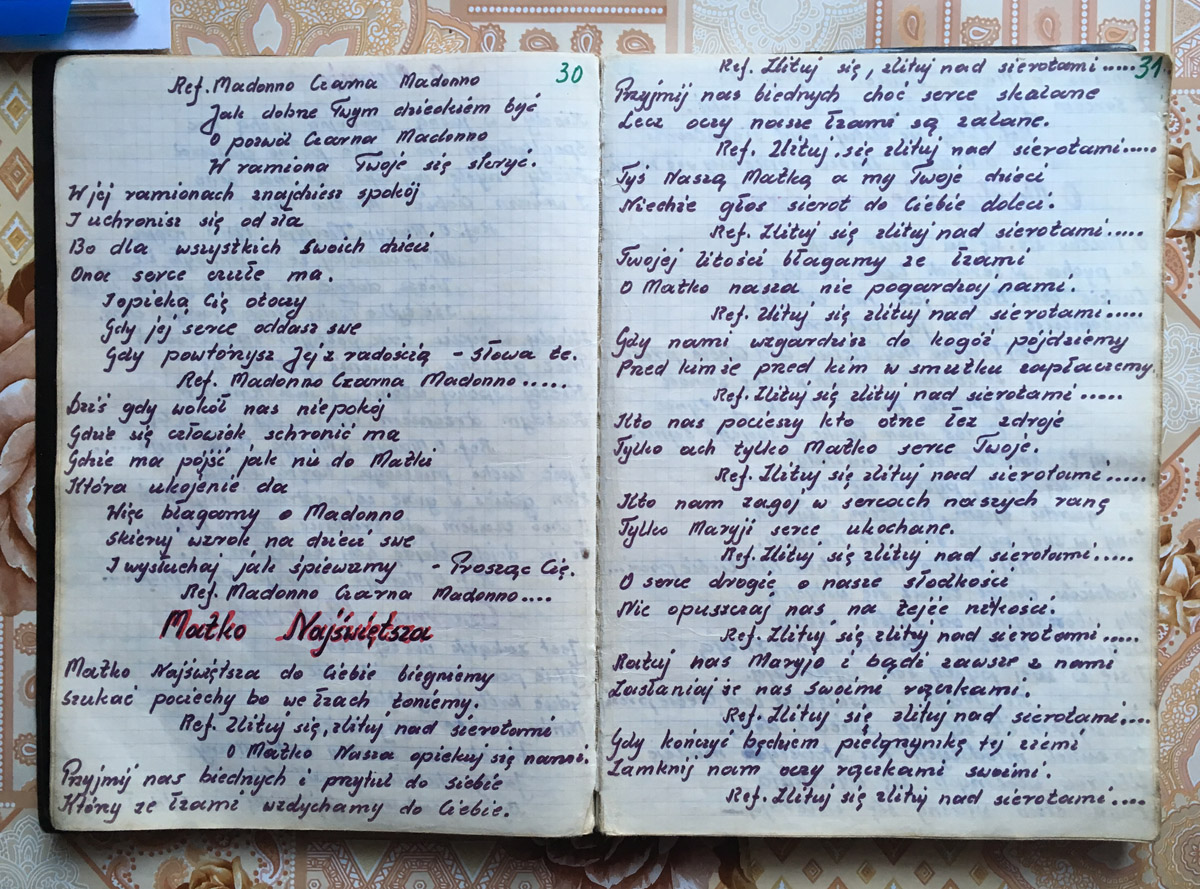 30
Ref. Madonno Czarna Madonno
Jak dobrze Twym dzieckiem być
O pozwól Czarna Madonno
W ramiona Twoje się skryć.
W jej ramionach znajdziesz spokój
I uchronisz się od zła
Bo dla wszystkich swoich dzieci
Ona serce czułe ma.
I opieką Cię otoczy
Gdy jej serce oddasz swe
Gdy powtórzysz Jej z radością - słowa te.
Ref. Madonno Czarna Madonno.....
Dziś gdy wokół nas niepokój
Gdzie się człowiek schronić ma
Gdzie ma pójść jak nie do Matki
Która ukojenie da
Więc błagamy o Madonno
Skieruj wzrok na dzieci swe
I wysłuchaj jak śpiewamy - Prosząc Cię.
Ref. Madonno Czarna Madonno....
Matko Najświętsza
Matko Najświętsza do Ciebie biegniemy
Szukać pociechy bo we łzach toniemy.
Ref. Zlituj się, zlituj nad sierotami
O Matko Nasza opiekuj się nami.
Przyjmij nas biednych i przytul do siebie
Który ze łzami wzdychamy do Ciebie.
31
Ref. Zlituj się, zlituj nad sierotami.....
Przyjmij nas biednych choć serce skalane
Lecz oczy nasze łzami są zalane.
Ref. Zlituj się zlituj nad sierotami.....
Tyś Naszą Matką a my Twoje dzieci
Niechże głos sierot do Ciebie doleci.
Ref. Zlituj się zlituj nad sierotami.....
Twojej litości błagamy ze łzami
O Matko nasza nie pogardzaj nami.
Ref. Zlituj się zlituj nad sierotami.....
Gdy nami wzgardzisz do kogóż pójdziemy
Przed kimże przed kim w smutku zapłaczemy.
Ref. Zlituj się zlituj nad sierotami.....
Kto nas pocieszy kto otrze łez zdroje
Tylko ach tylko Matko serce Twoje.
Ref. Zlituj się zlituj nad sierotami...
Kto nam zagoj w sercach naszych ranę
Tylko Maryji serce ukochane.
Ref. Zlituj się zlituj nad sierotami.....
O serce drogie o nasze słodkości
Nie opuszczaj nas na tejże nikości.
Ref. Zlituj się zlituj nad sierotami...
Ratuj nas Maryjo i bądź zawsze z nami
Zasłaniaj że nas swoimi rączkami.
Ref. Zlituj się zlituj nad sierotami....
Gdy kończyć będziem pielgrzymkę tej ziemi
Zamknij nam oczy rączkami swoimi.
Ref. Zlituj się zlituj nad sierotami....